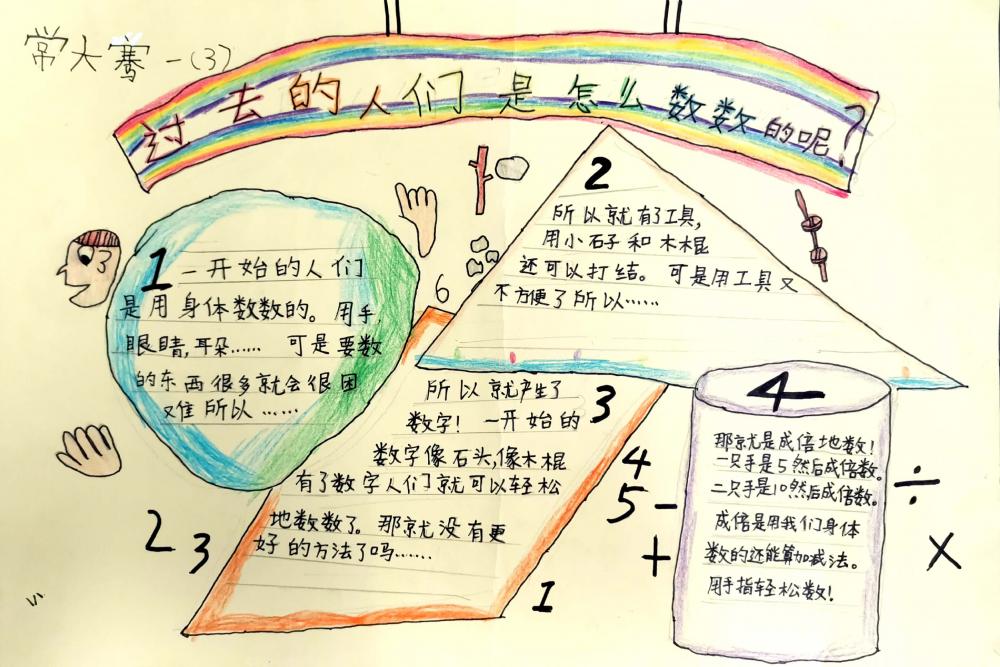 常大骞一(3)
过去的人们是怎么数数的呢?
1
一开始的人们
是用身体数数的。用手,
眼睛,耳朵…… 可是要数
的东西很多就会很困
难所以……
2
所以就有了工具,
用小石子和木棍
还可以打结。可是用工具又
不方便了所以……
6
3
所以就产生了
数字!一开始的
数字像石头,像木棍
有了数字人们就可以轻松
地数数了。那就没有更
好的方法了吗……
4
那就是成倍地数!
一只手是5然后成倍数。
二只手是10然后成倍数。
成倍是用我们身体
数的还能算加减法。
用手指轻松数!
2
3
1
4
5
-
+
÷
×